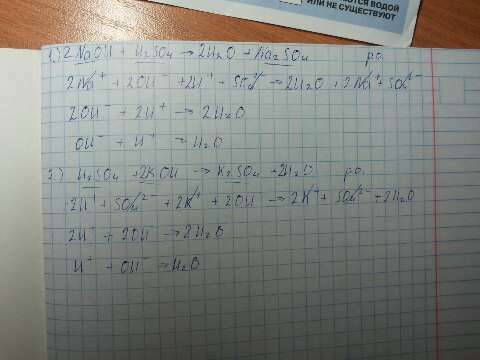 ЮТСЯ ВОДОЙ
ИЛИ НЕ СУЩЕСТВУЮТ
1.) 2NaOH + H₂SO₄ → 2H₂O + Na₂SO₄ р.о.
2Na⁺ + 2OH⁻ + 2H⁺ + SO₄²⁻ → 2H₂O + 2Na⁺ + SO₄²⁻
2OH⁻ + 2H⁺ → 2H₂O
OH⁻ + H⁺ → H₂O
2.) H₂SO₄ + 2KOH → K₂SO₄ + 2H₂O р.о.
2H⁺ + SO₄²⁻ + 2K⁺ + 2OH → 2K⁺ + SO₄²⁻ + 2H₂O
2H⁺ + 2OH⁻ → 2H₂O
H⁺ + OH⁻ → H₂O